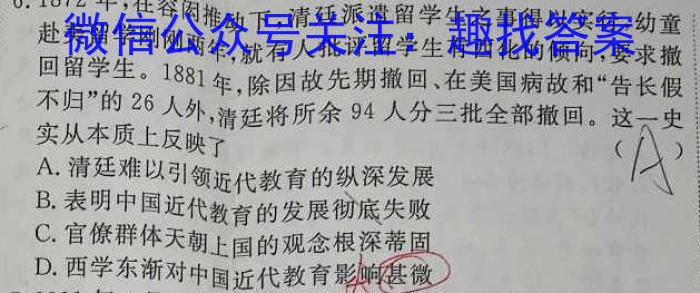 6. 1872年,在容闳推动下,清廷派遣留学生之事得以
幼童
微信公众号关注:趣找答案
赴美留学刚刚两年,就有人批评留学生有西化的倾向,要求撤
回留学生。1881年,除因故先期撤回、在美国病故和“告长假
不归”的26人外,清廷将所余94人分三批全部撤回。这一史
实从本质上反映了
(A)
A.清廷难以引领近代教育的纵深发展
B.表明中国近代教育的发展彻底失败
C.官僚群体天朝上国的观念根深蒂固
D.西学东渐对中国近代教育影响甚微